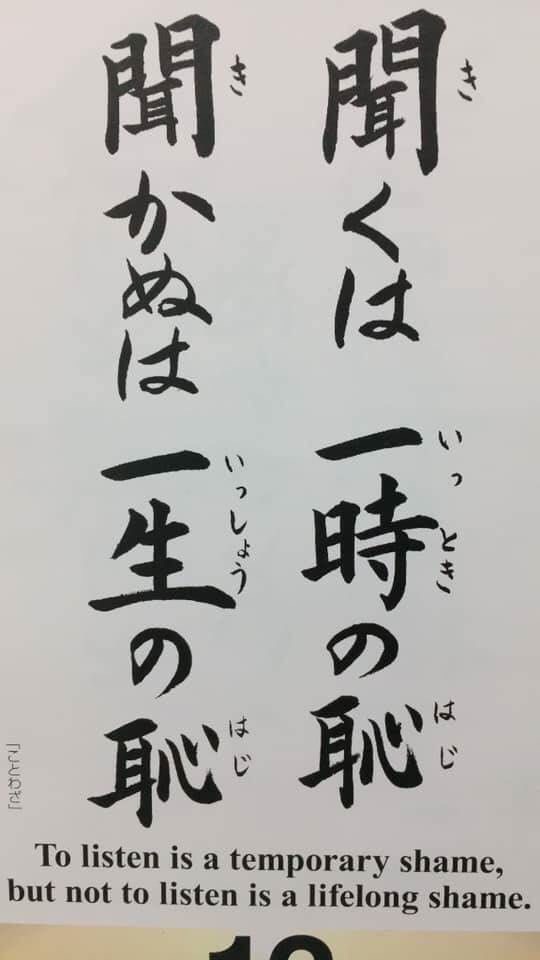 聞くは一時の恥
き
いっとき
はじ
聞かぬは一生の恥
き
いっしょう
はじ
To listen is a temporary shame,
but not to listen is a lifelong shame.